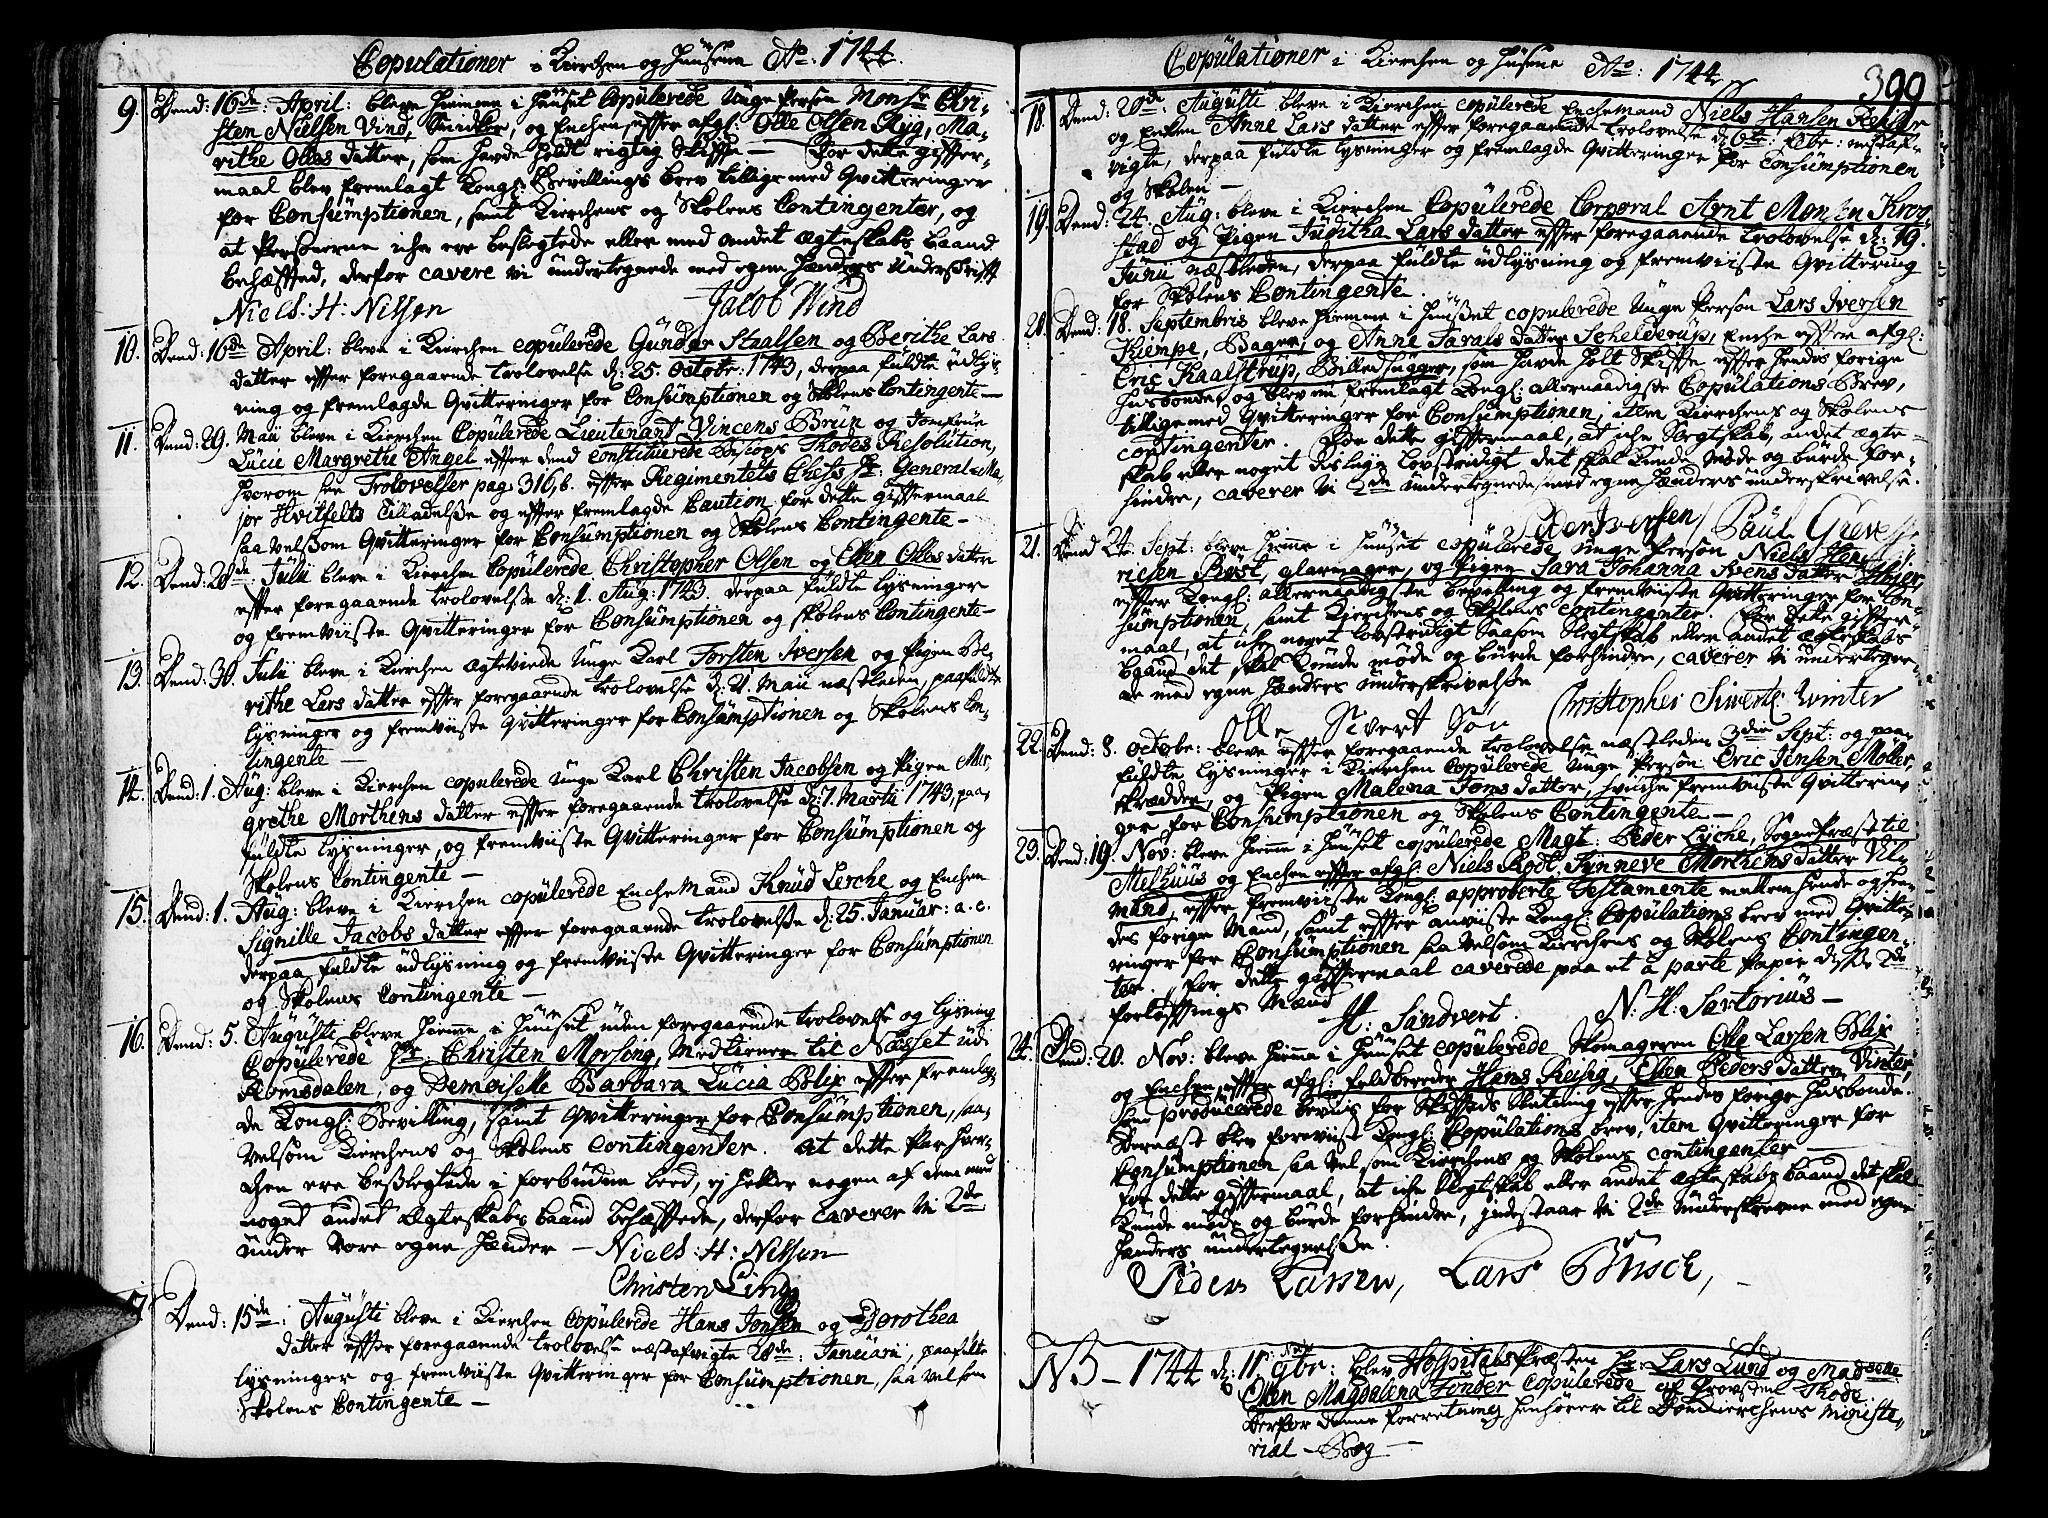 Copulationer i Kierchen og Huusene Ao: 1744.
9. Dend: 16de April: bleve hiemme i Huuset Copulerede Unge Person Monsr Chri-
sten Nielsen Vind, Snidker, og Enchen effter afgl: Olle Olsen Ryg, Ma-
rithe Olles datter, som havde holdt rigtig Skiffte — For dette giffter-
maal blev fremlagt Kongl: Bevillings brev tillige med Qvitteringer
for Consumptionen, samt Kierchens og Skolens Contingenter, og
at Personerne iche ere beslegtede eller med andet Ægteskabs baand
behæffted, derfor cavere vi undertegnede med egne Hænders Underskrifft
Niels: H: Nilsen Jacob Wind
10. Dend: 16de April: bleve i Kierchen copulerede Gunder Staalsen og Berithe Lars
datter effter foregaaende trolovelse d: 25. Octobr: 1743, derpaa fuldte udlys-
ning og fremlagde Qvitteringer for Consumptionen og Skolens Contingente —
11. Dend: 29. Maii bleve i Kierchen Copulerede Lieutenant Vincens Brun og Jomfrue
Lucie Margrethe Angel effter dend Constituerede Biscops Thodes Resolution,
hvorom see Trolovelser pag: 316, 8. effter Regimentets Cheffs Hr: General-Ma-
jor Hvitfelts Tilladelse og effter fremlagde Caution for dette gifftermaal
saa velsom Qvitteringer for Consumptionen og Skolens Contingente —
12. Dend: 28de Julii bleve i Kierchen Copulerede Christopher Olsen og Ellen Olles datter
effter foregaaende trolovelse d: 1. Aug: 1743. derpaa fuldte lysninger
og fremviiste Qvitteringer for Consumptionen og Skolens Contingente —
13. Dend: 30. Julii bleve i Kierchen ægteviede Unge Karl Torsten Iversen og Pigen Be-
rithe Lars datter effter foregaaende trolovelse d: 21. Maii næstleden, paafuldte
lysninger og fremviiste Qvitteringer for Consumptionen og Skolens Con-
tingente —
14. Dend: 1. Aug: bleve i Kierchen copulerede Unge Karl Christen Jacobsen og Pigen Mar-
grethe Morthens datter effter foregaaende trolovelse d: 7. Martii 1743, paa-
fuldte lysninger, og fremviiste Qvitteringer for Consumptionen og
Skolens Contingente —
15. Dend: 1. Aug: bleve i Kierchen copulerede Enche Mand Knud Lerche og Enchen
Signille Jacobs datter effter foregaaende trolovelse d: 25. Januar: a. c.
derpaa fuldte udlysning og fremviiste Qvitteringer for Consumptionen
og Skolens Contingente —
16. Dend: 5. Augusti bleve hiemme i Huuset uden foregaaende trolovelse og lysning
Copulerede Hr: Christen Morsing, Medtiener til Næsset udi
Romsdalen, og Demoiselle Barbara Lucia Blix effter fremlag-
de Kongl: Bevilling, samt Qvitteringer for Consumptionen, saa-
velsom Kierchens og Skolens Contingenter. At dette Par hver-
chen ere beslegtede i forbudne leed, ej heller nogen af dem med
noget andet Ægteskabs baand behæfftede, derfor caverer vi 2de
under vore egne Hænder — Niels: H: Nilsen
Christen Lind
17. Dend: 15de: Augusti bleve i Kierchen Copulerede Hans Jonsen og Dorothea
datter effter foregaaende trolovelse næstafvigte 28de: Januarii, paafuldte
lysninger og fremviiste Qvitteringer for Consumptionen, saa velsom
Skolens Contingente —
Copulationer i Kierchen og Husene Ao: 1744 399
18. Dend: 20de Augusti bleve i Kierchen copulerede Enche Mand Niels Hansen
og Enchen Anne Lars datter effter foregaaende trolovelse d: 6te: Febr: næstaf-
vigte, derpaa fuldte lysninger og fremlagde Qvitteringer for Consumptionen
og Skolen —
19. Dend: 24. Aug: bleve i Kierchen Copulerede Corporal Arnt Monsen Krog-
stad og Pigen Juditha Lars datter effter foregaaende trolovelse d: 19.
Junii næstleden, derpaa fuldte udlysning og fremviiste Qvittering
for Skolens Contingente.
20. Dend: 18. Septembris bleve hiemme i Huuset copulerede Unge Person Lars Iversen
Kiempe, Bager, og Anne Tarals datter Schelderup, Enche effter afgl:
Eric Kaalstrup, Billedhugger, som havde holt Skiffte effter hendes forige
Husbonde, og blev nu fremlagt Kongl: allernaadigste Copulations Brev,
tillige med Qvitteringer for Consumptionen, item Kierchens og Skolens
contingenter. For dette gifftermaal, at iche Slegtskab, andet Ægte-
skab eller noget disligt lovstridigt det skal kunde møde og burde for-
hindre, caverer vi 2de Undertegnede med egne Hænders underskrivelse.
Peder Iversen Paul Greve
21. Dend 24. Sept: bleve hiemme i Huuset copulerede Unge Person Niels Hen-
ricsen Røst, glarmager, og Pigen Sara Johanna Svens datter
effter Kongl: allernaadigste bevilling og fremviiste Qvitteringer for Con-
sumptionen, samt Kierchens og Skolens contingenter. For dette giffter-
maal, at iche noget lovstridigt Saasom Slegtskab eller andet Ægteskabs
baand det skal kunde møde og burde forhindre, caverer vi undertegne-
de med egne Hænders underskrivelse
Olle Sivert Søn Christopher Siverts: Winter
22. Dend: 8. Octobr: bleve effter foregaaende trolovelse næstleden 3die Sept: og paa-
fuldte lysninger i Kierchen Copulerede Unge Person Eric Jensen Møller,
skrædder, og Pigen Malena Toms datter, hvilche fremviiste Qvitterin-
ger for Consumptionen og Skolens Contingente —
23. Dend: 19. Nov: bleve hiemme i Huuset copulerede Magr: Peder Lyche, Sogne Præst til
Melhuus og Enchen effter afgl: Niels Rodl, Synneve Morthens datter Vil-
mand, effter fremviiste Kongl: approberte Testamente mellem hende og hen-
des forige Mand, samt effter anviiste Kongl: Copulations brev med Qvitte-
ringer for Consumptionen saa velsom Kierchens og Skolens Contingen-
ter. For dette gifftermaal caverede paa et à parte Papir disse 2de
forløffnings Mænd H: Sandvert. N: H: Sartorius —
24. Dend: 20. Nov: bleve hiemme i Huuset copulerede Skomageren Olle Larsen Blix
og Enchen effter afgl: feldbereder Hans Reisig, Ellen Peders datter Vinter,
som producerede beviis for Skifftets Slutning effter hendes forige Husbonde.
Dernæst blev foreviist Kongl: Copulations brev, item Qvitteringer for
Consumptionen saa vel som Kierchens og Skolens contingenter —
for dette gifftermaal, at iche Slegtskab eller andet ægteskabs baand det skal
kunde møde og burde forhindre, indestaar vi 2de Underskrevne med egne
Hænders undertegnelse.
Peder Larsen, Lars Busch,
NB — 1744 d: 11. 9br: blev Hospitals Præsten Hr: Lars Lund og Madselle
Ellen Magdalena Tønder copulerede af Provsten Thode
derfor denne forretning henhører til Domkierchens Ministe-
rial — Bog —